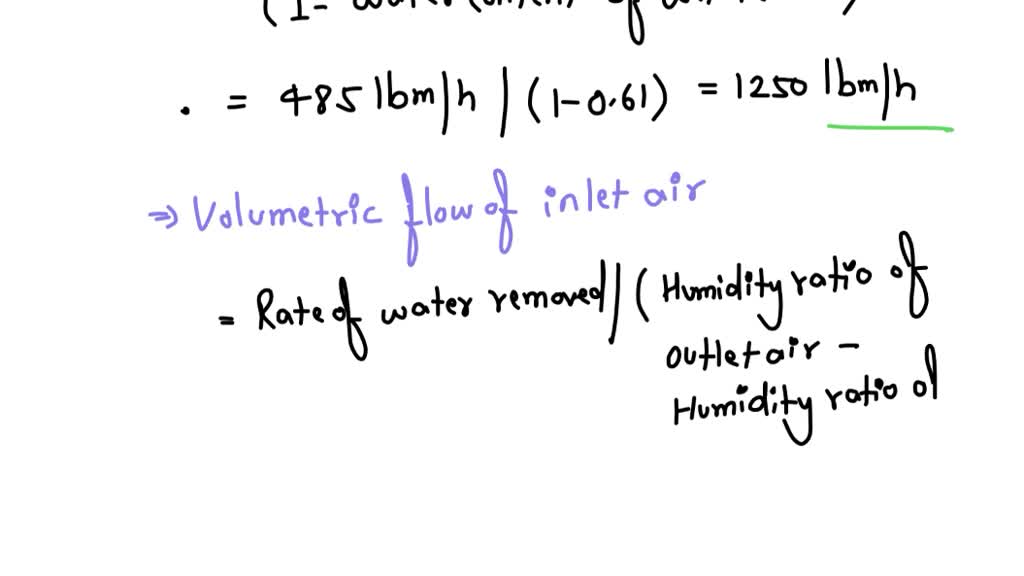 (1-
. = 485 lbm/h / (1-0.61) = 1250 lbm/h
⇒ Volumetric flow of inlet air
= Rate of water removed / ( Humidity ratio of
outlet air -
Humidity ratio of